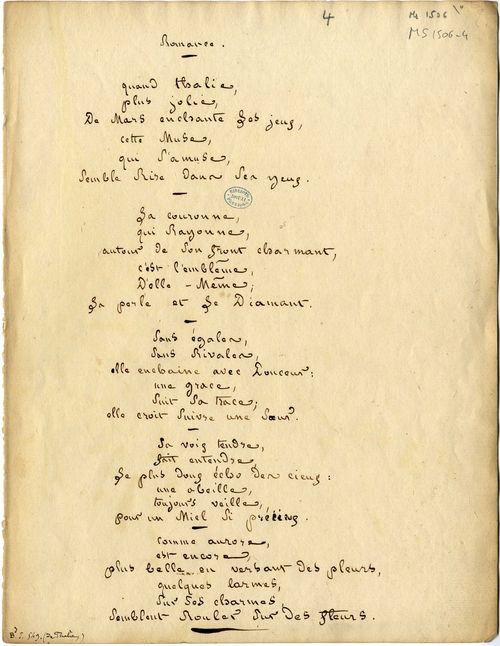 4
Ms 1506
MS 1506-4
Romance.
quand thalie,
plus jolie,
De Mars enchante Les jeux,
cette Muse,
qui s'amuse,
Semble Rire dans Ses yeux.
Sa couronne,
qui Rayonne,
autour de Son front charmant,
c'est l'emblême,
D'elle-Même;
La perle et Le Diamant.
Sans égales,
Sans Rivales,
elle enchaine avec Douceur:
une grace,
Suit Sa trace;
elle croit Suivre une Sœur.
Sa voix tendre,
fait entendre,
Le plus doux écho des cieux:
une abeille,
toujours veille,
pour un Miel Si précieux.
comme aurore,
est encore,
plus belle en versant des pleurs,
quelques larmes,
Sur Ses charmes
Semblent Rouler Sur Des fleurs.